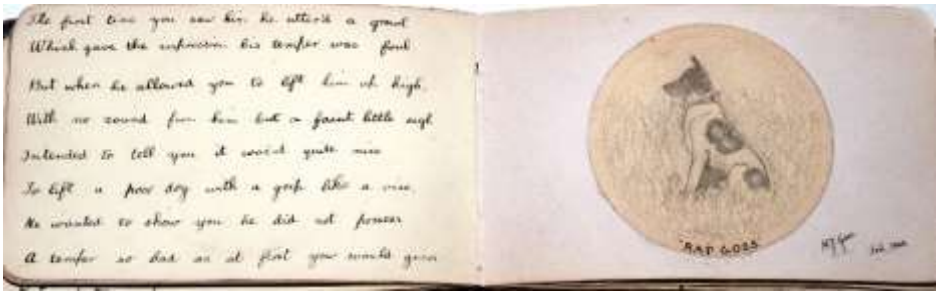 The first time you saw him he utter'd a growl
Which gave the impression his temper was foul
But when he allowed you to lift him up high
With no sound from him but a faint little sigh
Intended to tell you it wasn't quite nice
To lift a poor dog with a grip like a vice.
He wanted to show you he did not possess
A temper so bad as at first you would guess
RAP GOSS